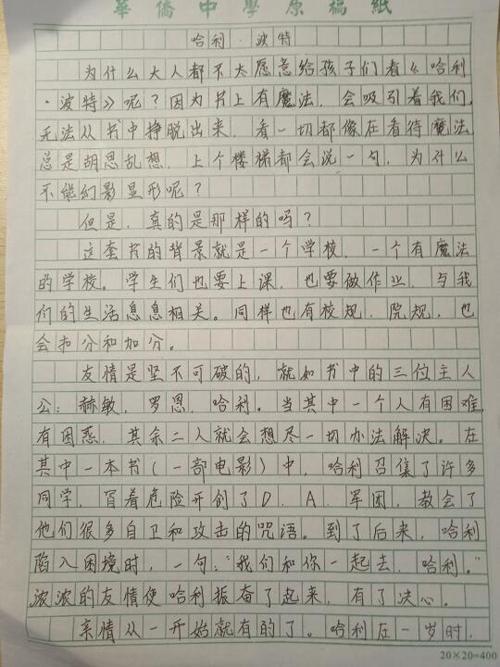 華僑中學原稿紙
哈利·波特
为什么大人都不太愿意给孩子们看《哈利
·波特》呢？因为书上有魔法，会吸引着我们，
无法从书中挣脱出来，看一切都像在看待魔法
总是胡思乱想，上个楼梯都会说一句，为什么
不能幻影显形呢？
但是，真的是那样的吗？
这套书的背景就是一个学校，一个有魔法
的学校。学生们也要上课，也要做作业，与我
们的生活息息相关。同样也有校规，院规，也
会扣分和加分。
友情是坚不可破的，就如书中的三位主人
公：赫敏，罗恩，哈利。当其中一个人有困难，
有困惑，其余二人就会想尽一切办法解决。在
其中一本书（一部电影）中，哈利召集了许多
同学，冒着危险开创了D.A.军团，教会了
他们很多自卫和攻击的咒语。到了后来，哈利
陷入困境时，一句："我们和你一起去，哈利。"
浓浓的友情使哈利振奋了起来，有了决心。
亲情从一开始就有的了。哈利在一岁时，
20×20=400